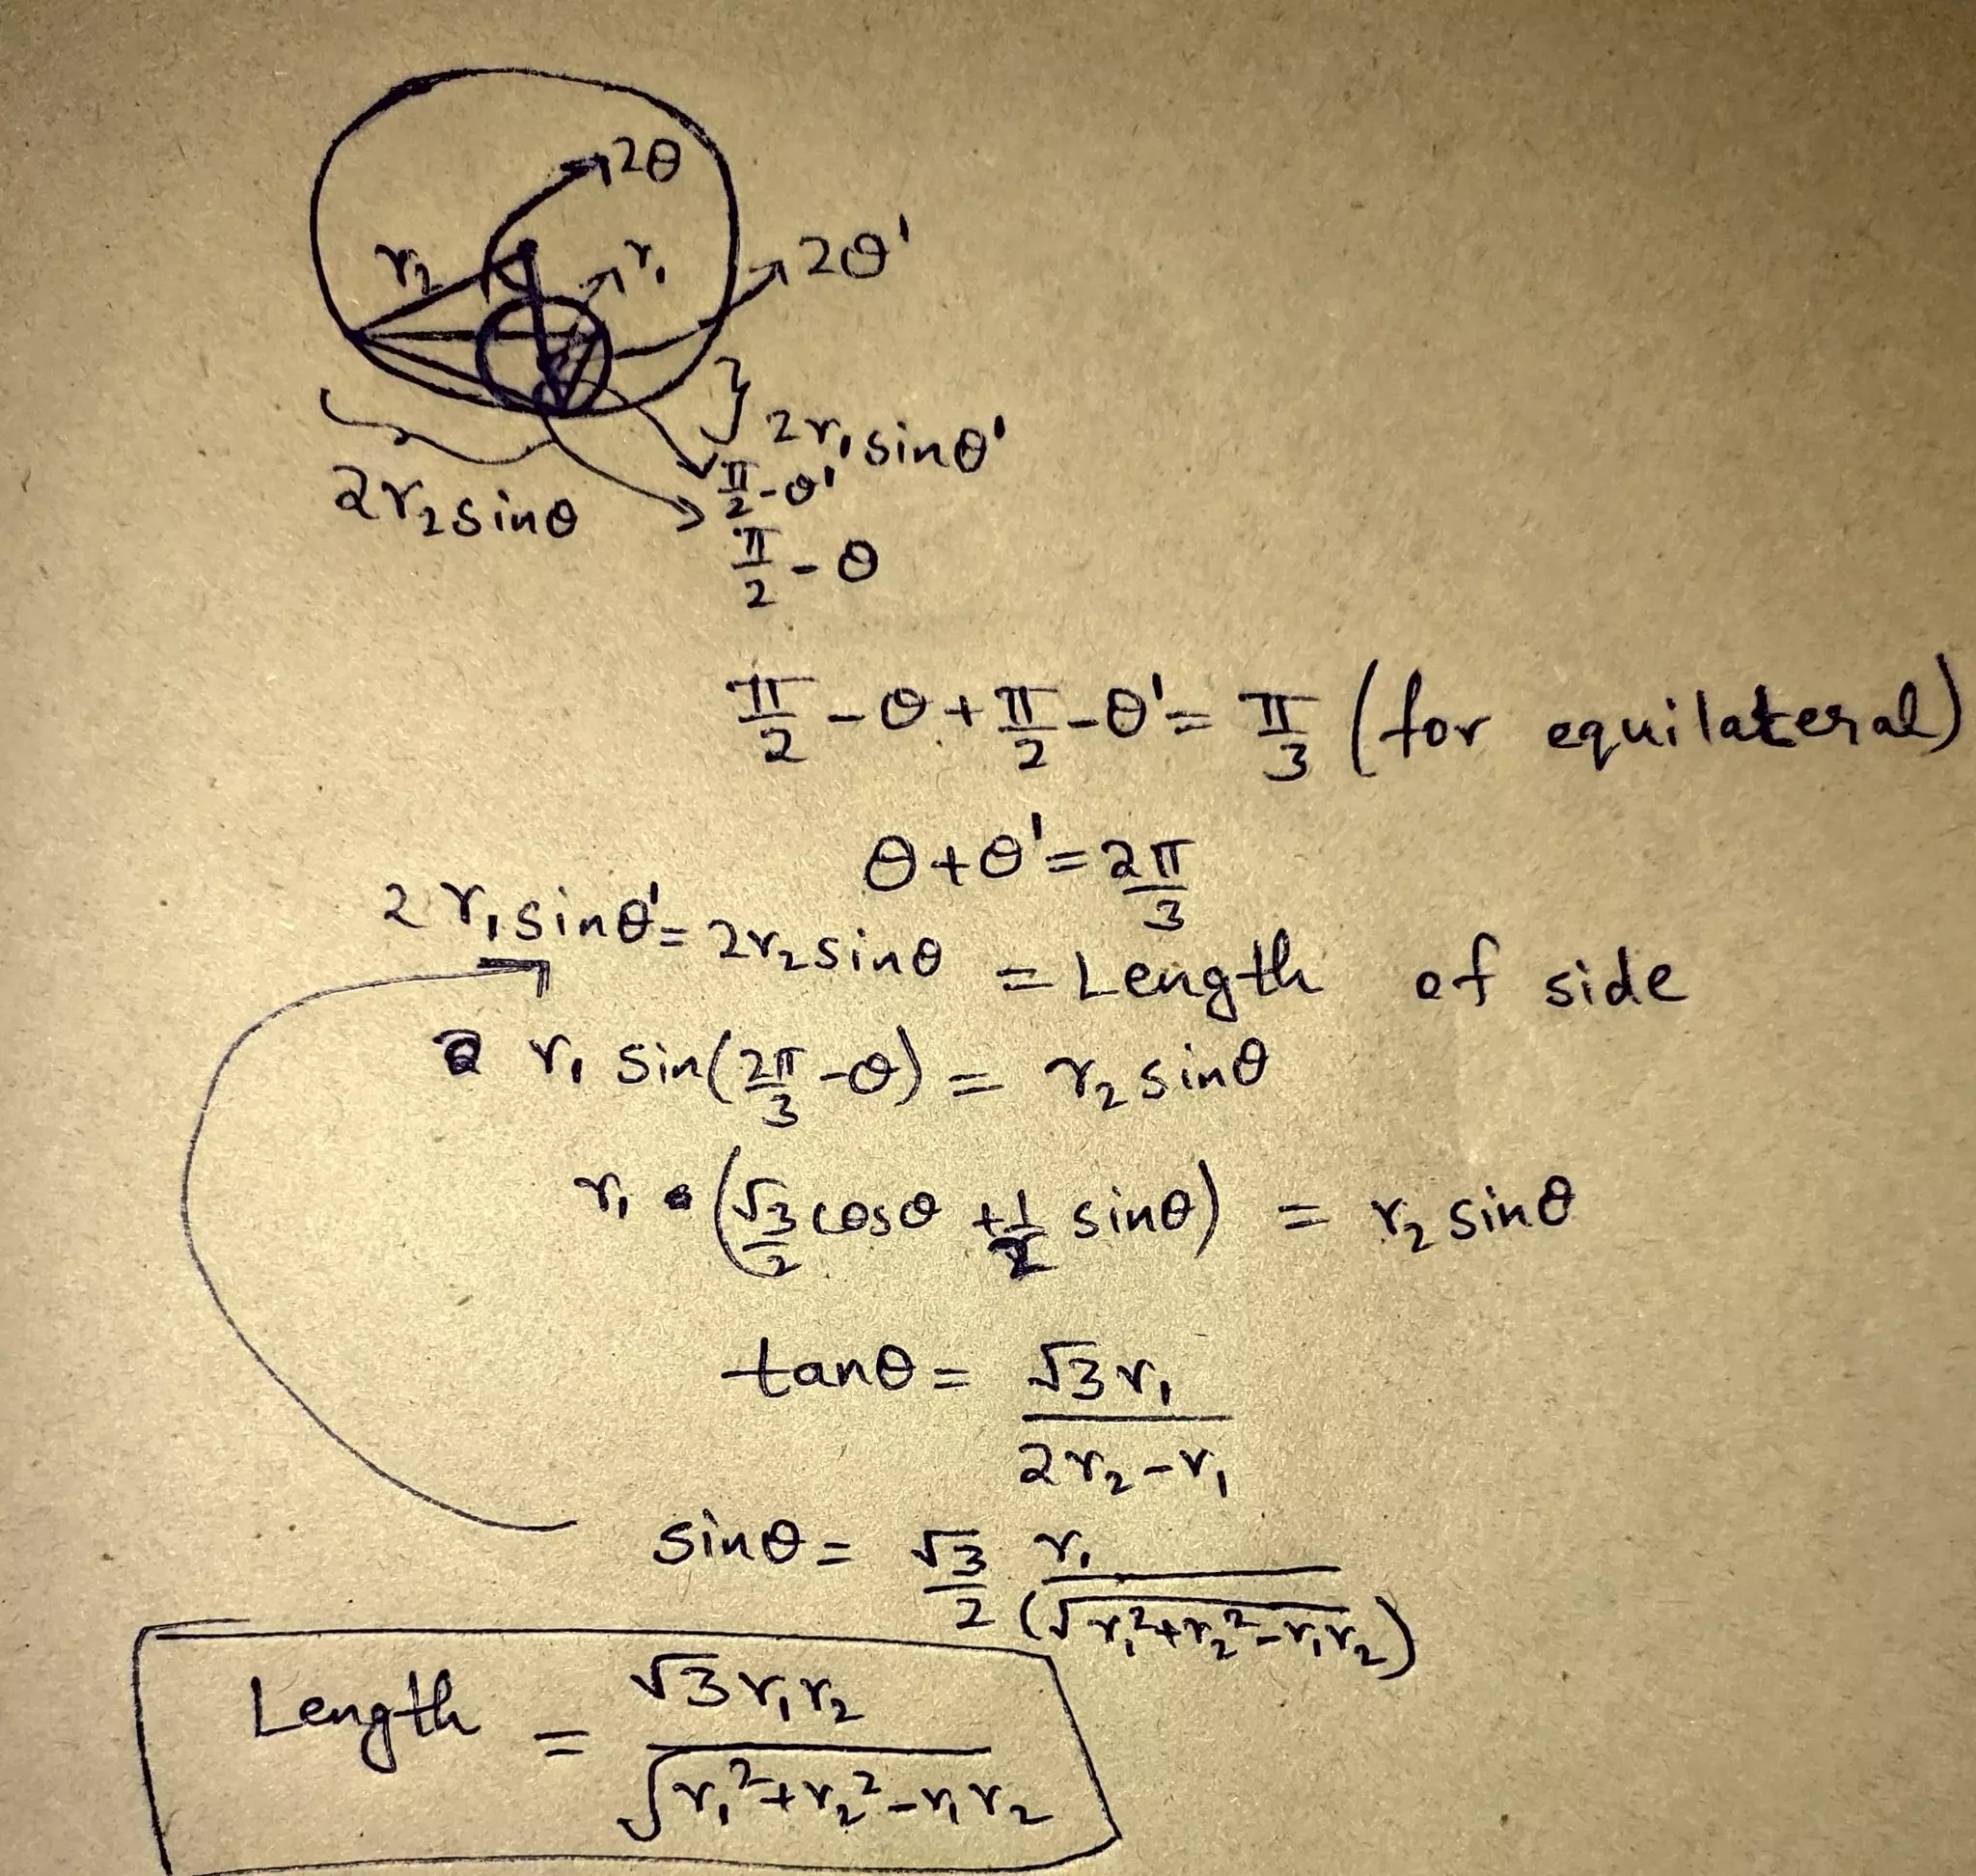 2θ
r₂
r₁
2θ'
2r₁sinθ'
π/2-θ'
2r₂sinθ
π/2-θ
π/2-θ+π/2-θ'=π/3 (for equilateral)
θ+θ'=2π/3
2r₁sinθ'=2r₂sinθ = Length of side
r₁ sin(2π/3-θ) = r₂sinθ
r₁(√3/2 cosθ +1/2 sinθ) = r₂sinθ
tanθ = √3r₁/(2r₂-r₁)
sinθ = √3/2 r₁/(√r₁²+r₂²-r₁r₂)
Length = √3r₁r₂/√r₁²+r₂²-r₁r₂